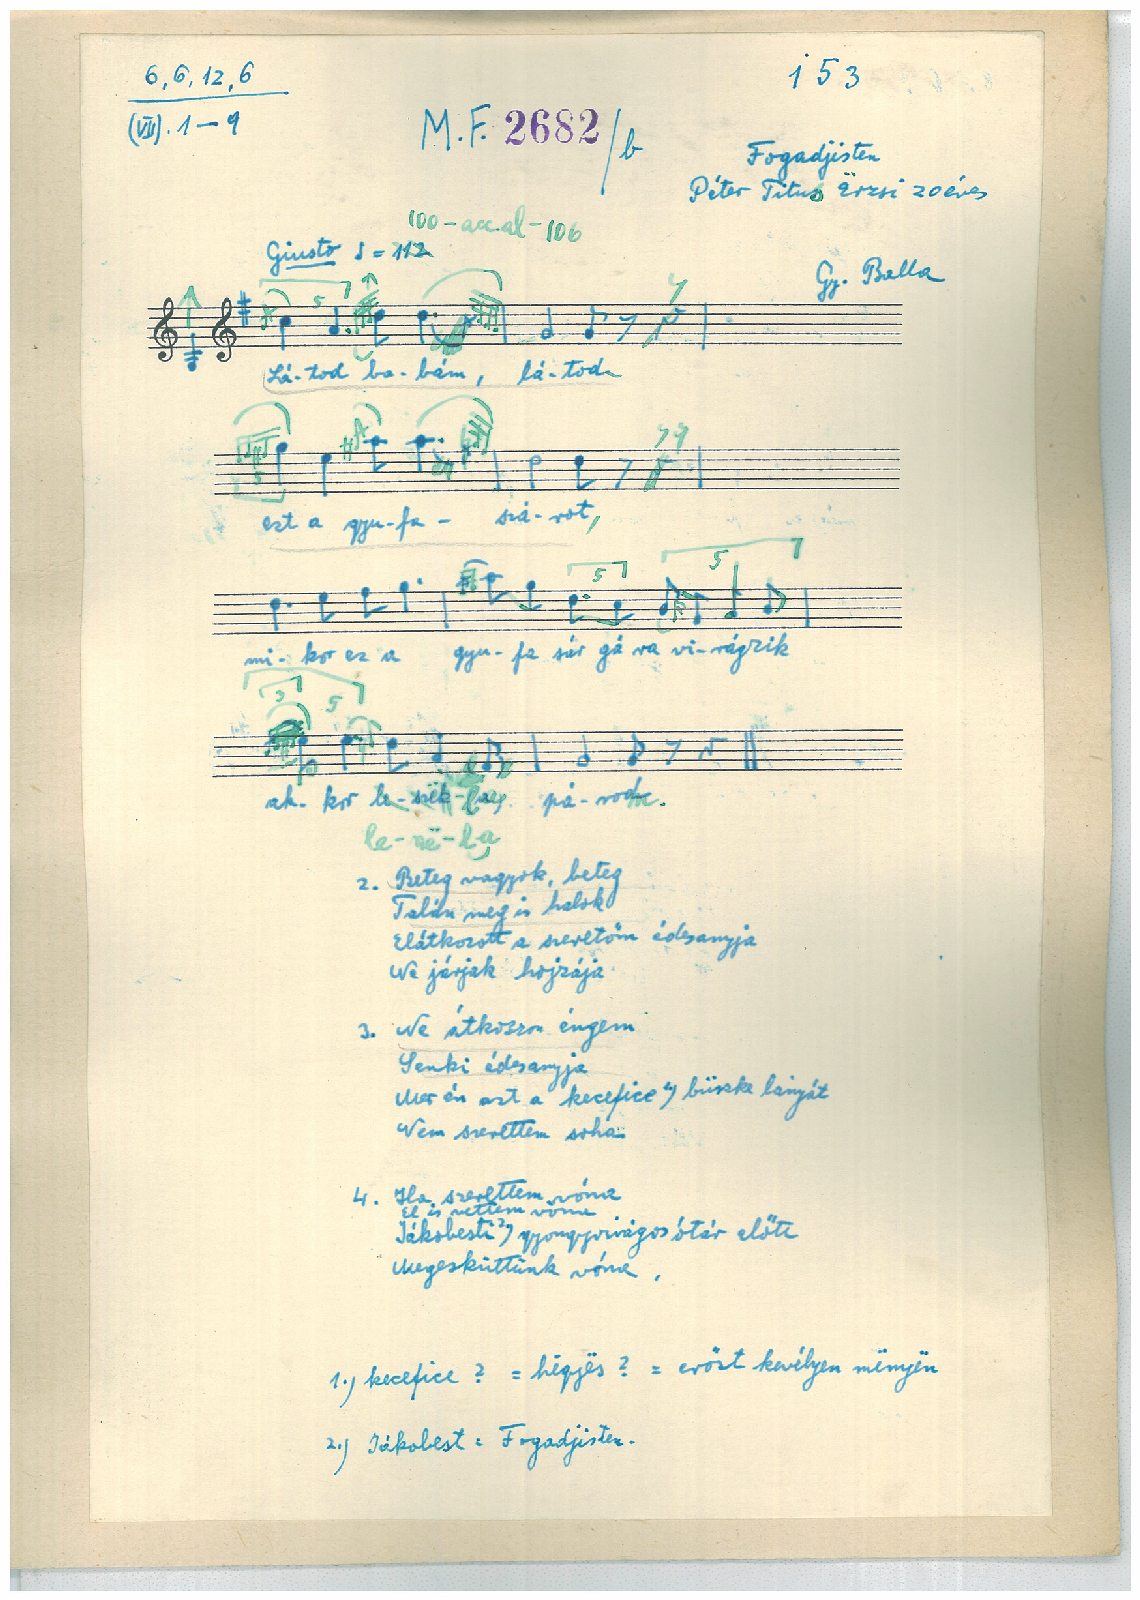 6, 6, 12, 6
i 53
(VII). 1 — 9
M.F. 2682/b
Fogadjisten
Péter Titus Ërzsi 20 éves
100 - accel - 106
Giusto = 112
Gy. Balla
5
Lá-tod ba-bám, lá-tod
5
ezt a gyu-fa- szá-rot,
5 5
mi-kor ez a gyu-fa sár gá ra vi-rágzik
3 5
ak-kor le- pá-rod
le-në-la
2. Beteg vagyok, beteg
Talán meg is halok
Elátkozott a szeretöm édesanyja
Ne járjak hojzája
3. Ne átkozzon éngem
Senki édesanyja
Mer én azt a kecefice 1) büszke lányát
Nem szerettem soha
4. Ha szerettem vóna
El is vettem vóna
Jákobesti 2) gyongyvirágos ótár előtt
Megesküttünk vóna.
1.) kecefice ? = hëgyës ? = erőst kevélyen mënyën
2.) Jákobest = Fogadjisten.